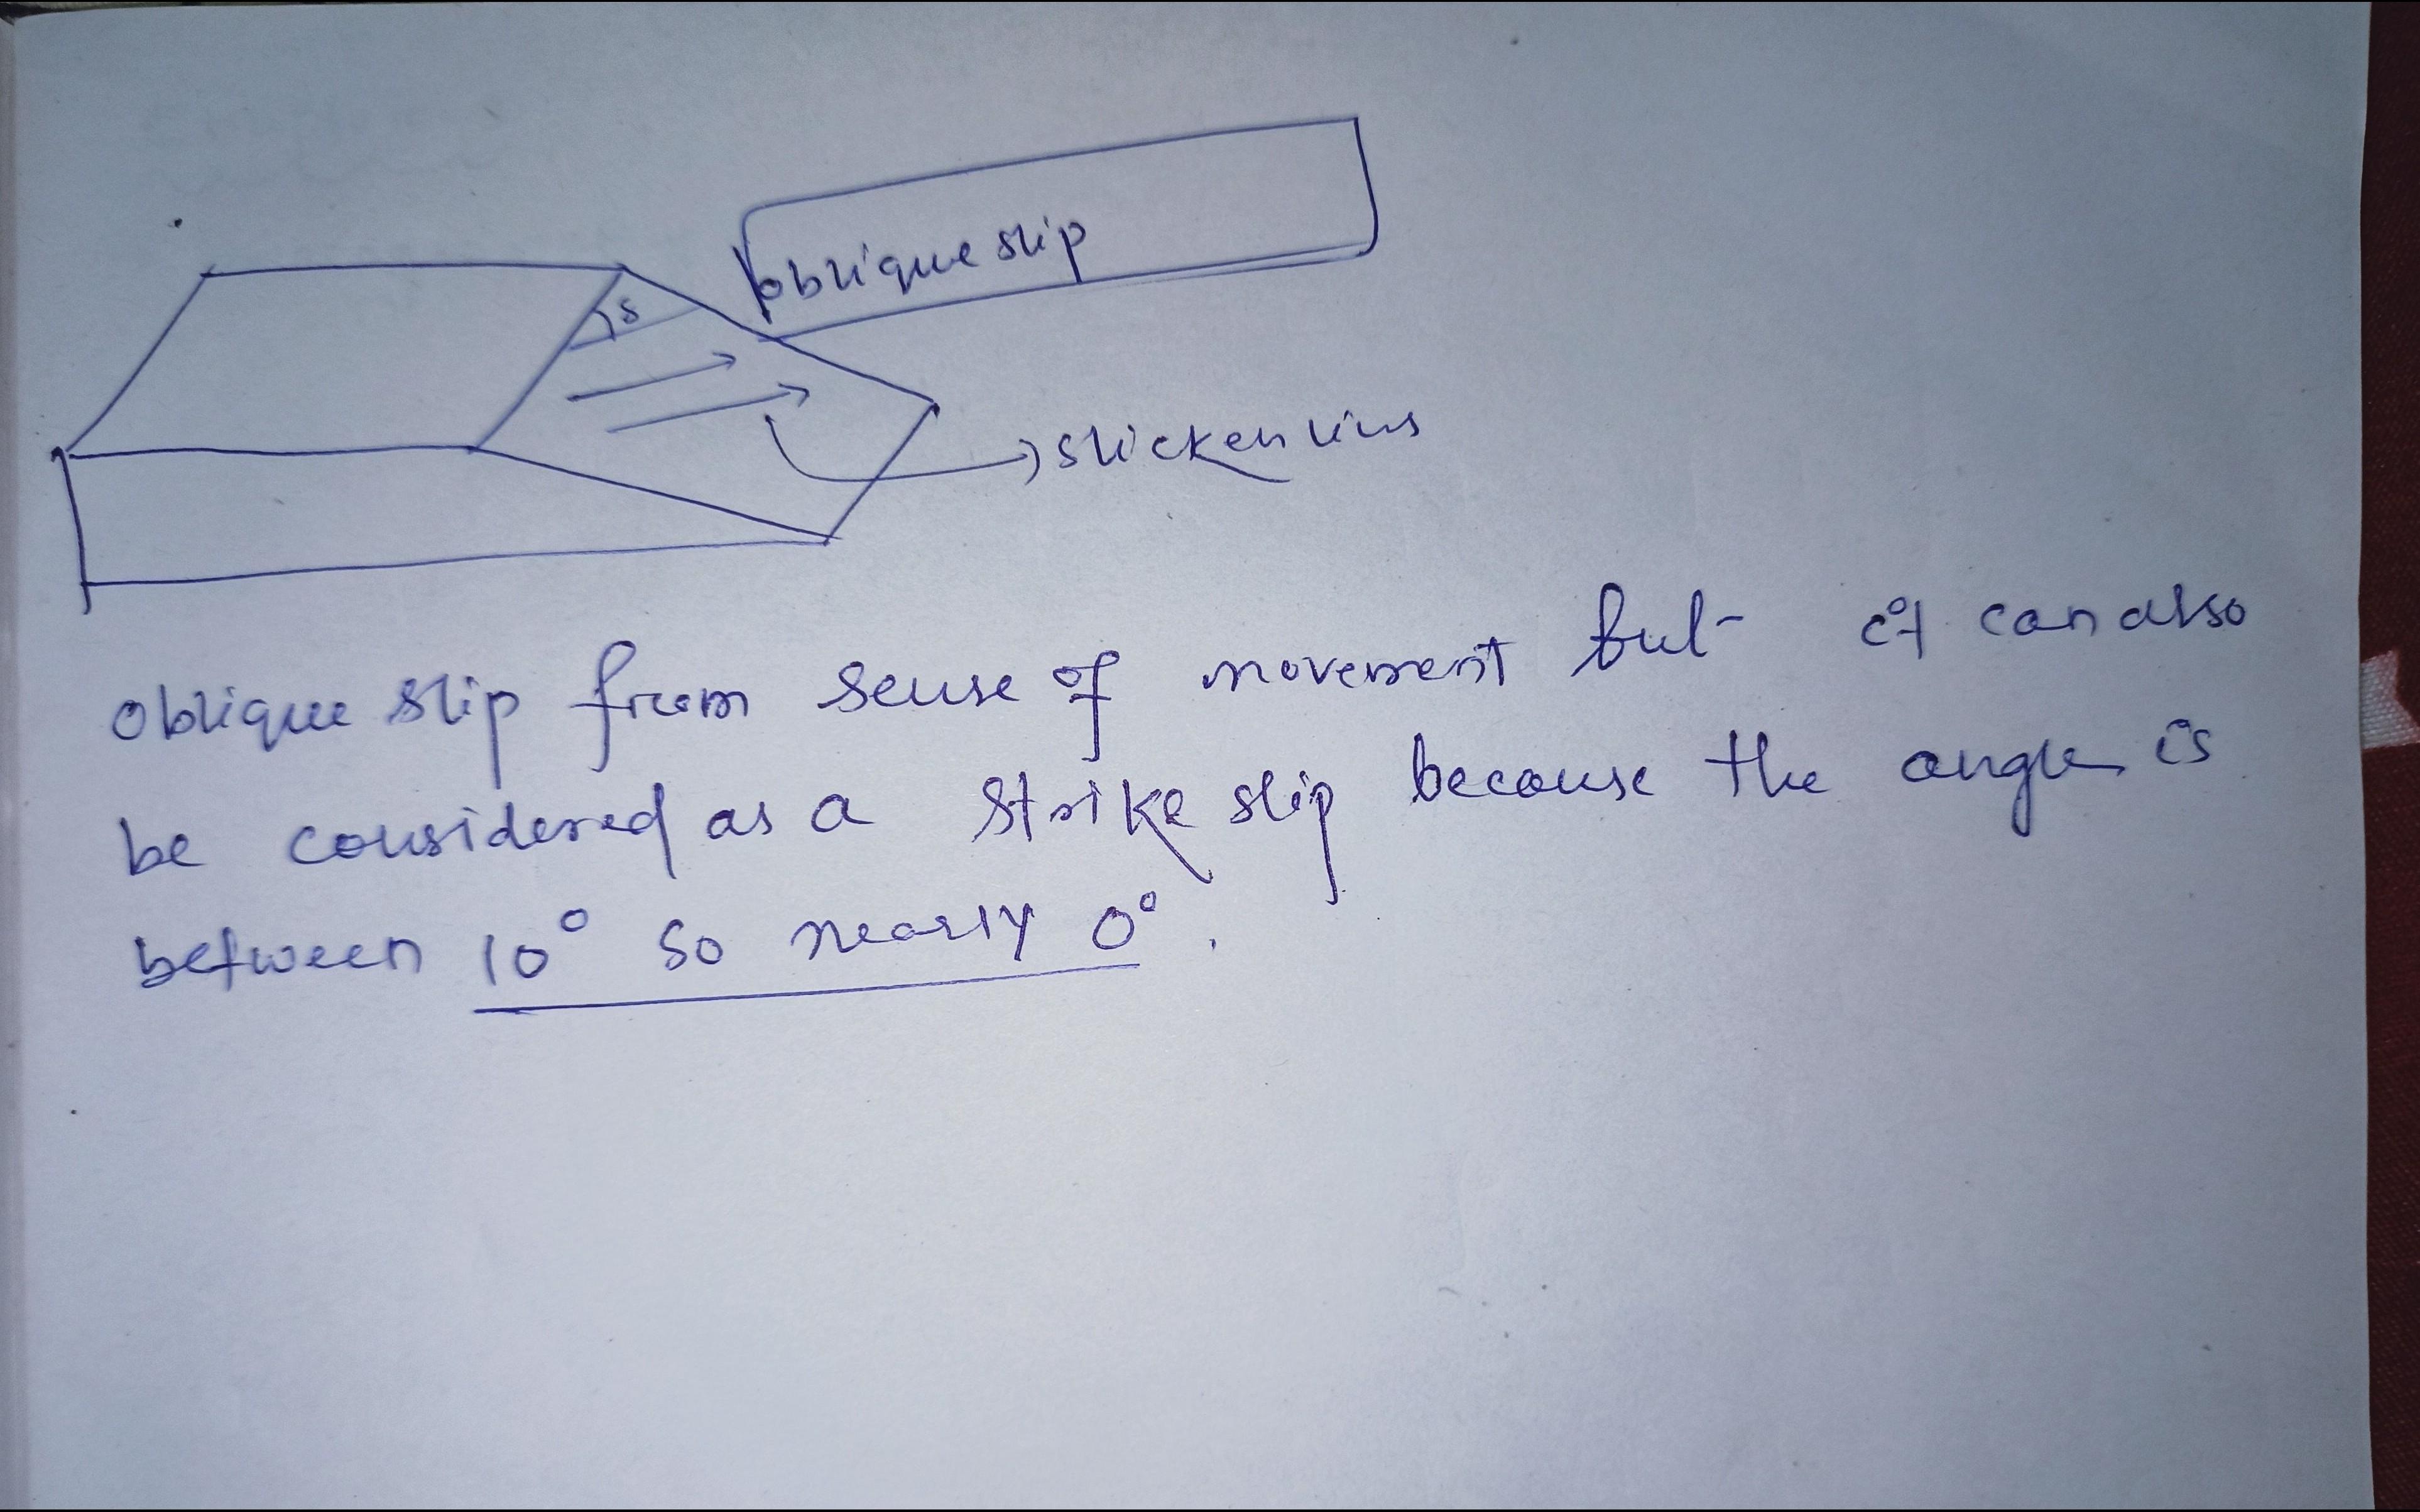 oblique slip
δ
slickenlins
oblique slip from sense of movement but it can also
be considered as a strike slip because the angle is
between 10° so nearly 0°.